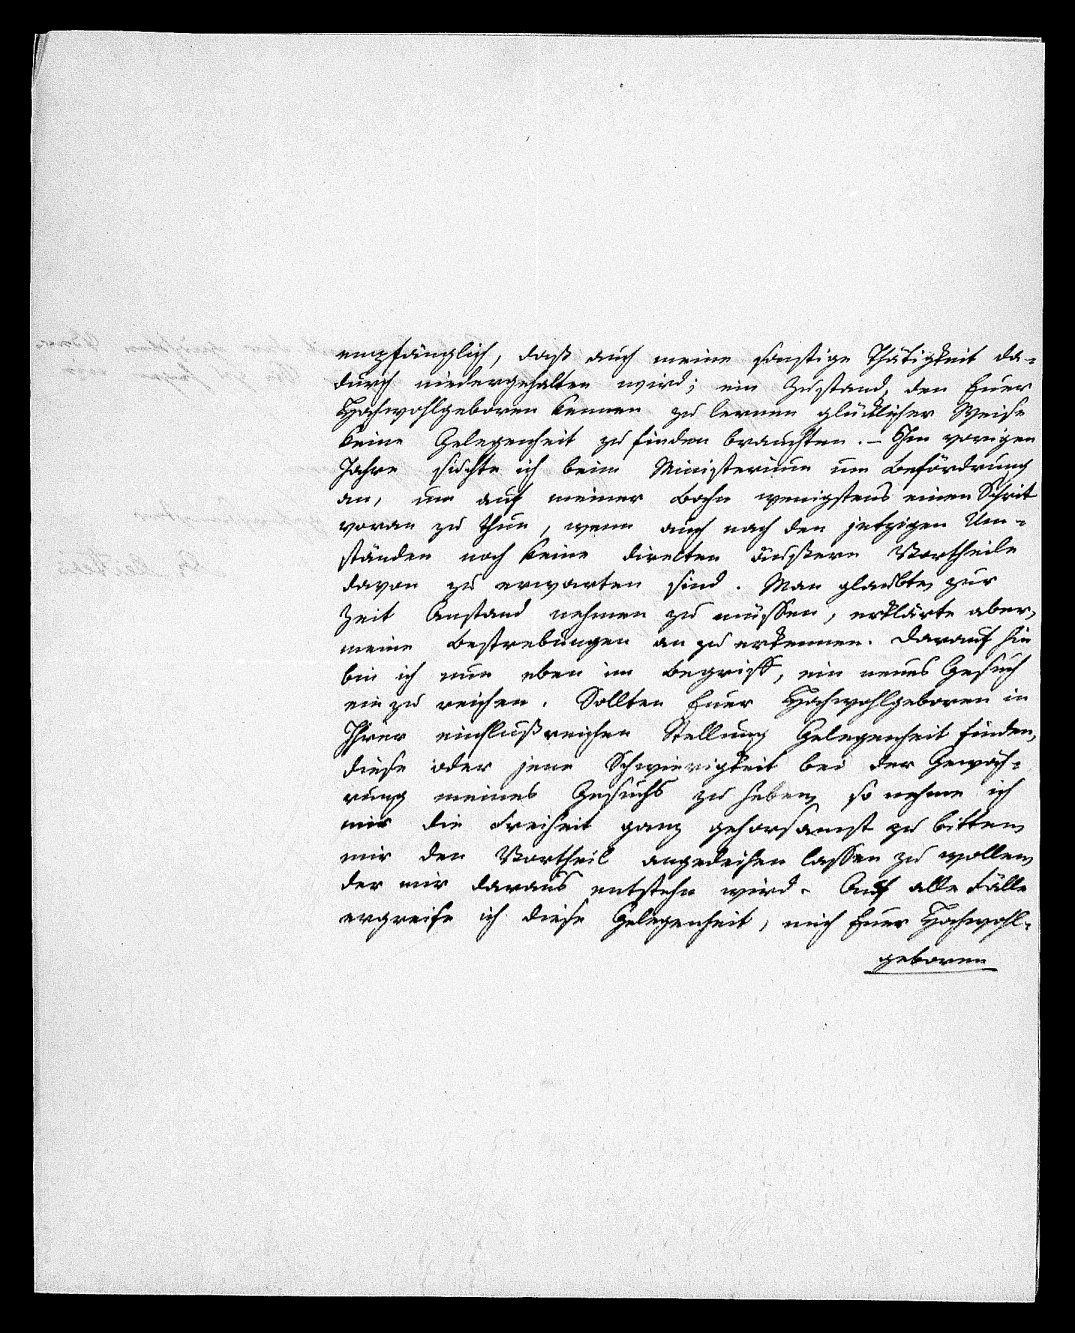 empfänglich, daß auch meine sonstige Thätigkeit da-
durch niedergehalten wird; ein Zustand, den Euer
Hochwohlgeboren kennen zu lernen glücklicher Weise
keine Gelegenheit zu finden brauchten. – Im vorigen
Jahre suchte ich beim Ministerium um Befördrung
an, um auf meiner Bahn wenigstens einen Schrit
voran zu thun, wenn auch nach den jetzigen Um-
ständen noch keine direkten äußern Vortheile
davon zu erwarten sind. Man glaubte, zur
Zeit Anstand nehmen zu müssen, erklärte aber,
meine Bestrebungen an zu erkennen. Darauf hin
bin ich nun eben im Begriff, ein neues Gesuch
ein zu reichen. Sollten Euer Hochwohlgeboren in
Ihrer einflußreichen Stellung Gelegenheit finden,
diese oder jene Schwierigkeit bei der Gewäh-
rung meines Gesuchs zu heben, so nehme ich
mir die Freiheit ganz gehorsamst zu bitten,
mir den Vortheil angedeihen lassen zu wollen,
der mir daraus entstehn wird. Auf alle Fälle
ergreife ich diese Gelegenheit, mich Euer Hochwohl-
geboren